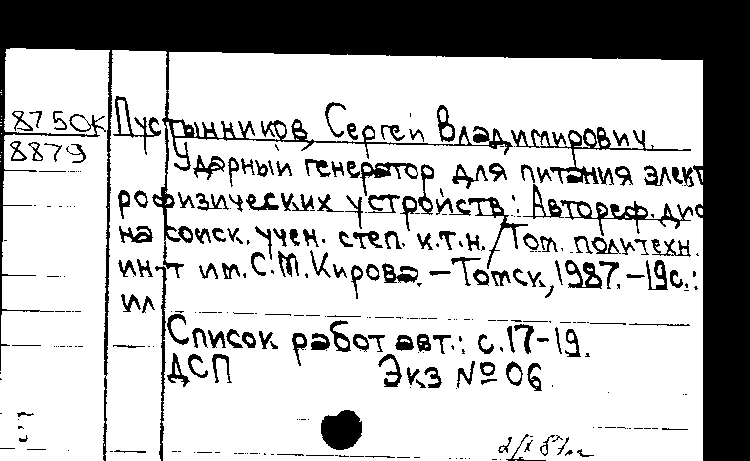 8750К Пустынников, Сергей Владимирович.
8879 Ударный генератор для питания элект
рофизических устройств: Автореф. дис
на соиск. учен. степ. к.т.н. / Том. политехн.
ин-т им. С.М. Кирова. – Томск, 1987. – 19с.:
ил
Список работ авт.: с.17-19.
ДСП Экз № 06